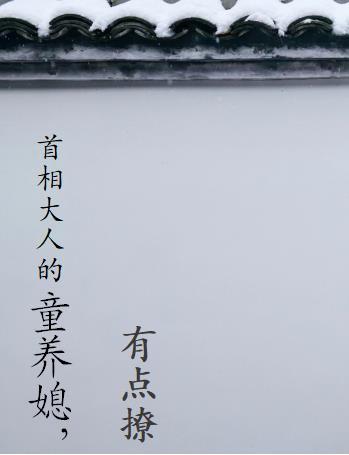 首相大人的童养媳，
有点撩